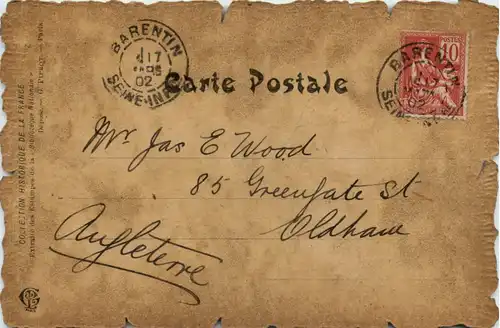 BARENTIN
17
02
SEINE-INF
POSTES
10
BARENTIN
17
02
SEINE-INF
Carte Postale
Mr. Jas E Wood
85 Greengate St
Oldham
Angleterre
COLLECTION HISTORIQUE DE LA FRANCE
Extraite des Estampes de la Bibliothèque Nationale